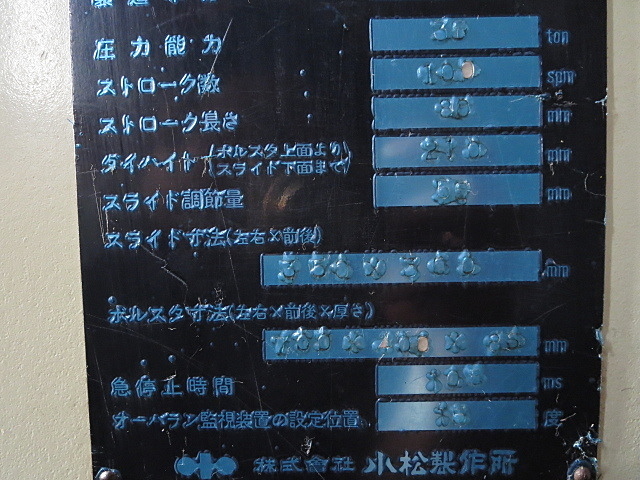 圧力能力 30 ton
ストローク数 100 spm
ストローク長さ 80 mm
ダイハイト(ボルスタ上面より スライド下面まで) 210 mm
スライド調節量 mm
スライド寸法(左右×前後)
300 mm
ボルスタ寸法(左右×前後×厚さ)
700 × 400 × mm
急停止時間 ms
オーバラン監視装置の設定位置 度
株式会社 小松製作所